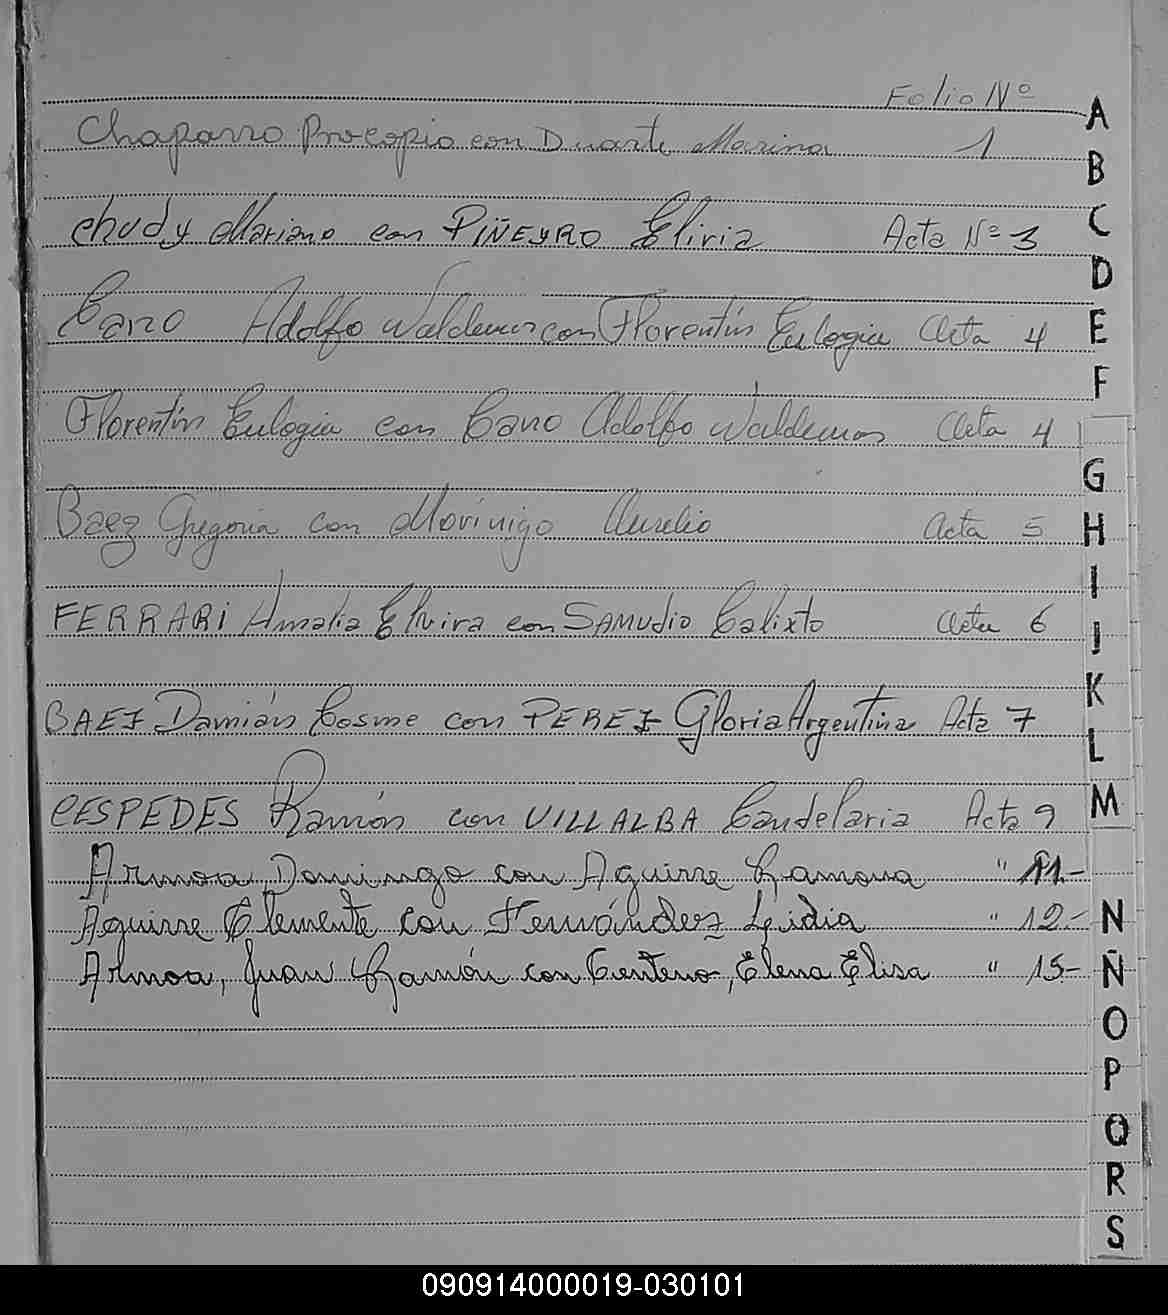 Folio Nº
Chaparro Procopio con Duarte Marina 1
Chudy Mariano con PIÑEYRO Elivia Acta Nº 3
Cano Adolfo Waldemar con Florentín Eulogia Acta 4
Florentín Eulogia con Cano Adolfo Waldemar Acta 4
Baez Gregoria con Morinigo Aurelio Acta 5
FERRARI Amalia Elvira con SAMUDIO Calixto Acta 6
BAEZ Damián Cosme con PEREZ Gloria Argentina Acta 7
CESPEDES Ramón con VILLALBA Candelaria Acta 9
Armoa Domingo con Aguirre Ramona " 11.-
Aguirre Clemente con Fernández Lidia " 12.-
Armoa, Juan Ramón con Centeno, Elena Elisa " 15-
A
B
C
D
E
F
G
H
I
J
K
L
M
N
Ñ
O
P
Q
R
S
090914000019-030101